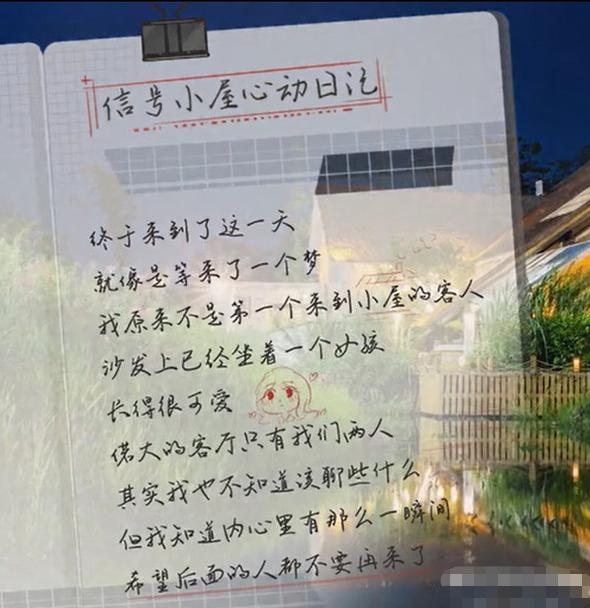 信号小屋心动日记
终于来到了这一天
就像是等来了一个梦
我原来不是第一个来到小屋的客人
沙发上已经坐着一个女孩
长得很可爱
偌大的客厅只有我们两人
其实我也不知道该聊些什么
但我知道内心里有那么一瞬间
希望后面的人都不要再来了